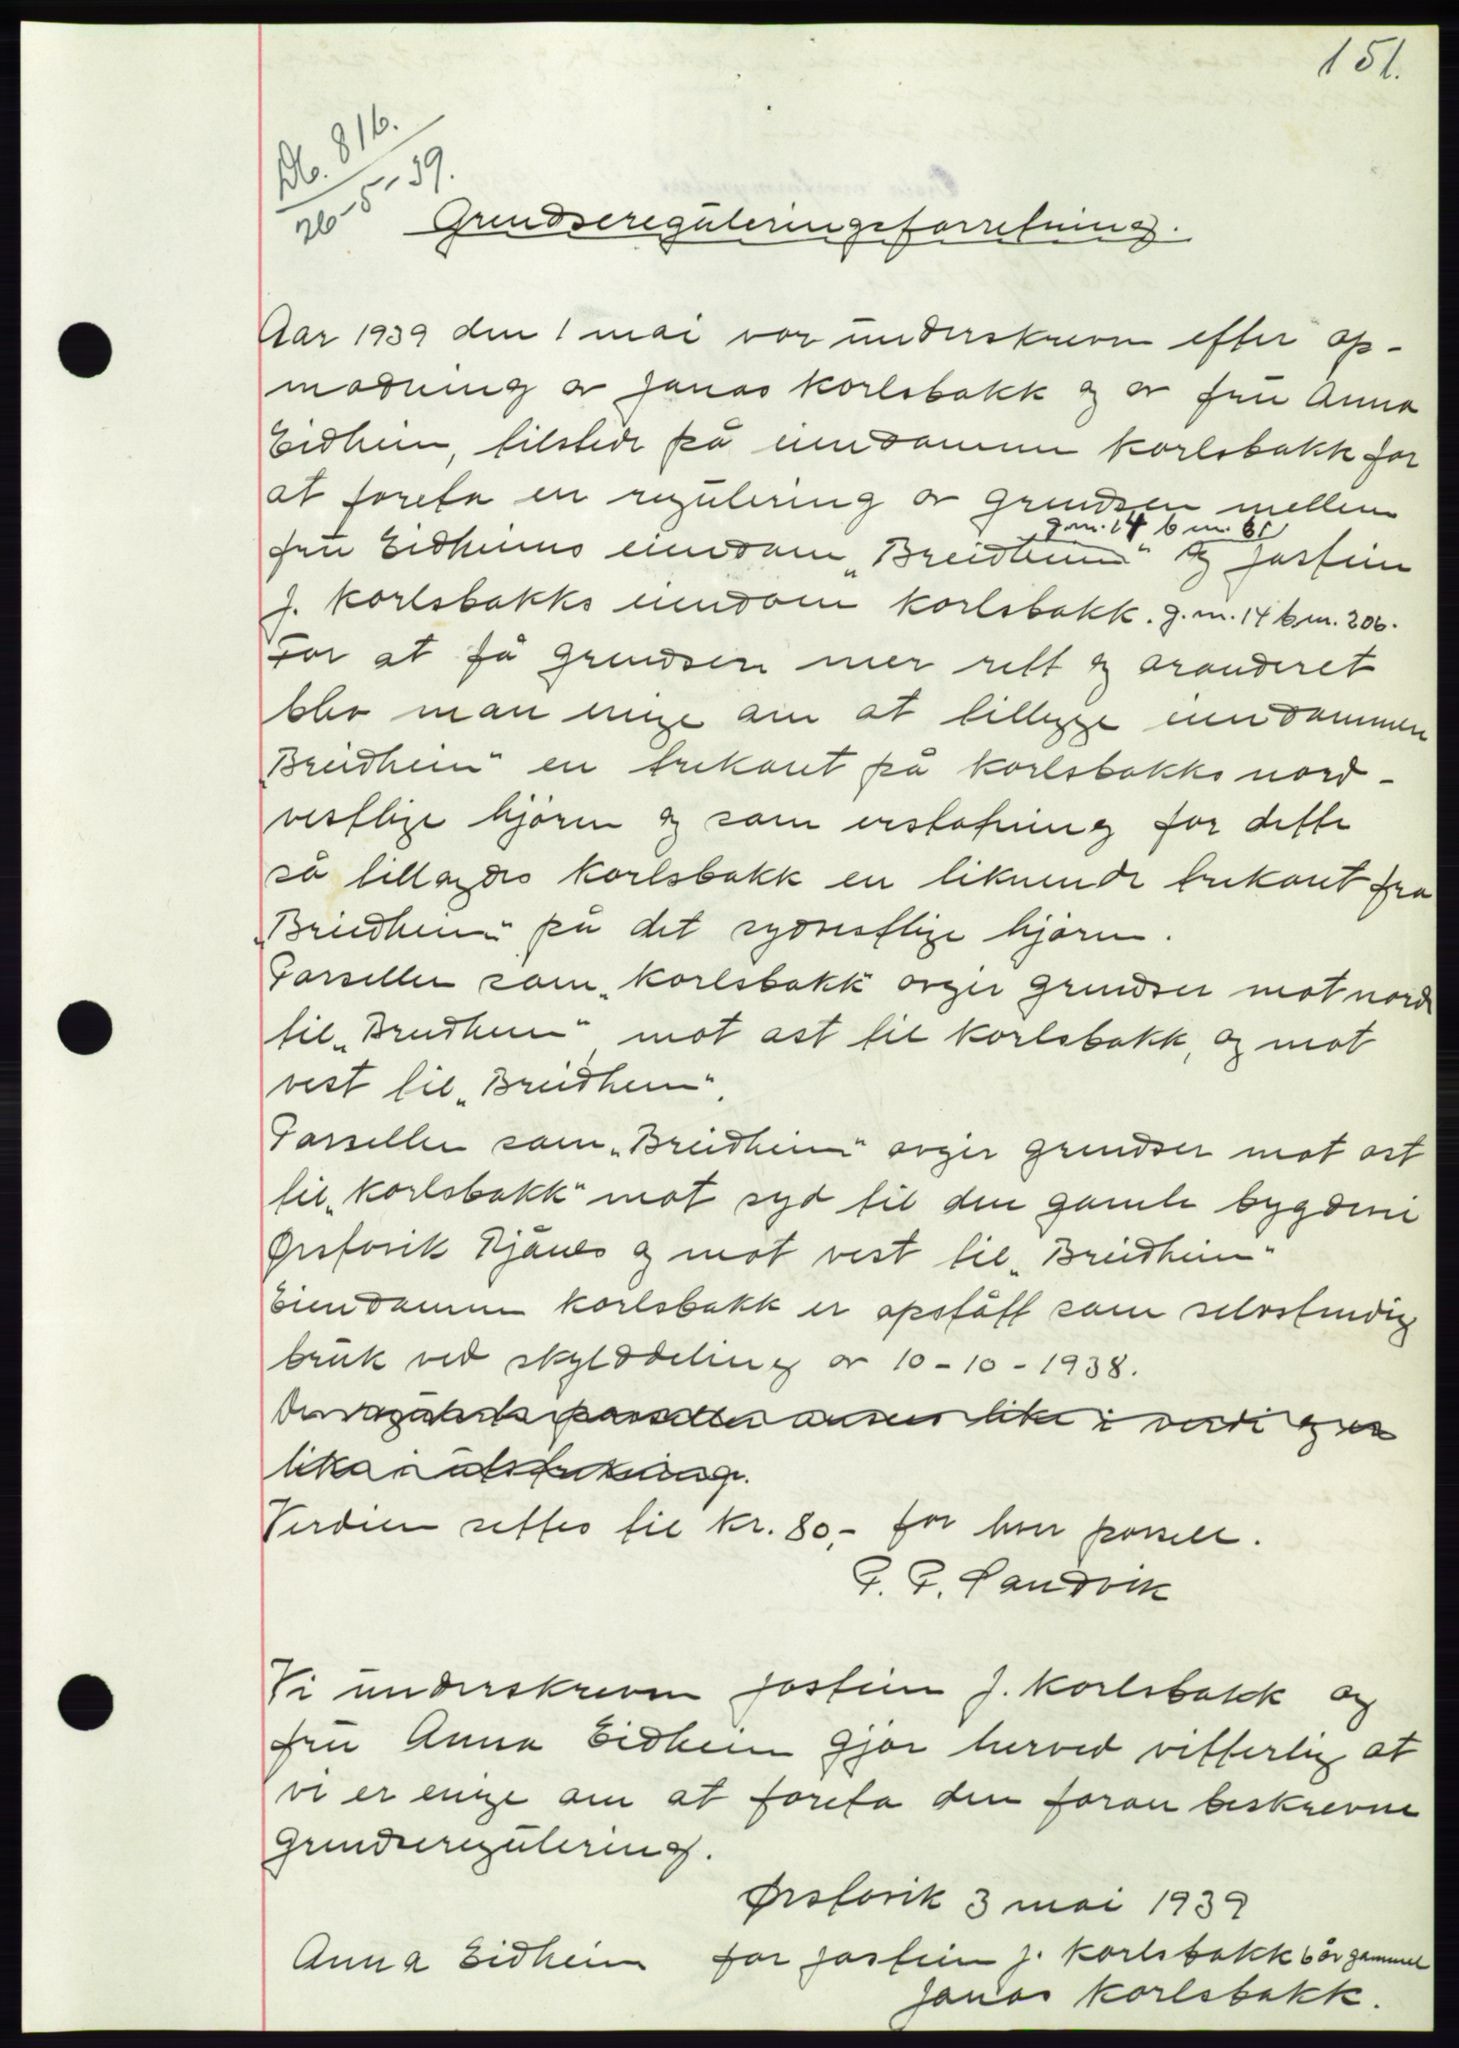 151.
Db. 816.
26-5-39.
Grundsereguleringsforretning.
Aar 1939 den 1 mai var underskrevne efter op-
modning av Jonas Karlsbakk og av fru Anna
Eidheim, tilstede på eiendommen Karlsbakk for
at foreta en regulering av grendsen mellem
g.nr. 14 b.nr. 61
fru Eidheims eiendom „Breidheim“ og Jostein
J. Karlsbakks eiendom Karlsbakk. g.nr. 14 b.nr. 206.
For at få grendsen mer rett og aronderet
blev man enige om at tillegge eiendommen
„Breidheim“ en trekant på Karlsbakks nord-
vestlige hjørne og som erstatning for dette
så tillagdes Karlsbakk en liknende trekant fra
„Breidheim“ på det sydvestlige hjørne.
Parsellen som „Karlsbakk“ avgir grendser mot nord
til „Breidheim“, mot ost til Karlsbakk, og mot
vest til „Breidheim“.
Parsellen som „Breidheim“ avgir grendser mot ost
til „Karlsbakk“ mot syd til den gamle bygdevei
Ørstavik Rjånes og mot vest til „Breidheim“
Eiendommen Karlsbakk er opstått som selvstendig
bruk ved skylddeling av 10-10-1938.
parseller ansees like i verdi og er
like i utstrekning.
Verdien settes til kr. 80,- for hver parsell.
P. P. Sandvik
Vi underskrevne Jostein J. Karlsbakk og
fru Anna Eidheim gjør herved vitterlig at
vi er enige om at foreta den foran beskrevne
grendseregulering.
Ørstavik 3 mai 1939
Anna Eidheim for Jostein J. Karlsbakk 6 år gammel
Jonas Karlsbakk.